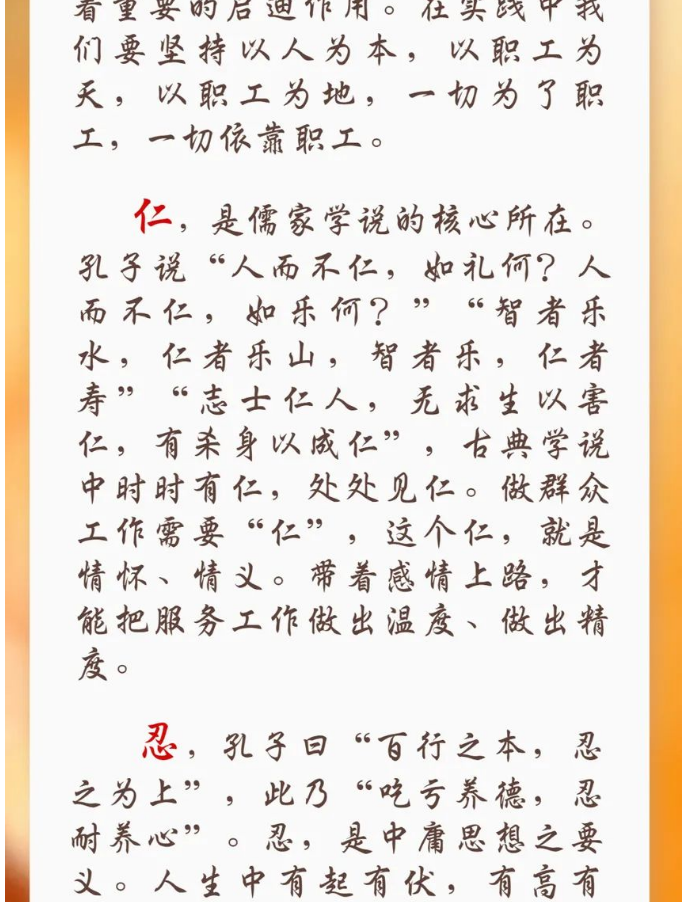 着重要的启迪作用。在实践中我
们要坚持以人为本，以职工为
天，以职工为地，一切为了职
工，一切依靠职工。
仁，是儒家学说的核心所在。
孔子说“人而不仁，如礼何？人
而不仁，如乐何？”“智者乐
水，仁者乐山，智者乐，仁者
寿”“志士仁人，无求生以害
仁，有杀身以成仁”，古典学说
中时时有仁，处处见仁。做群众
工作需要“仁”，这个仁，就是
情怀、情义。带着感情上路，才
能把服务工作做出温度、做出精
度。
忍，孔子曰“百行之本，忍
之为上”，此乃“吃亏养德，忍
耐养心”。忍，是中庸思想之要
义。人生中有起有伏，有高有